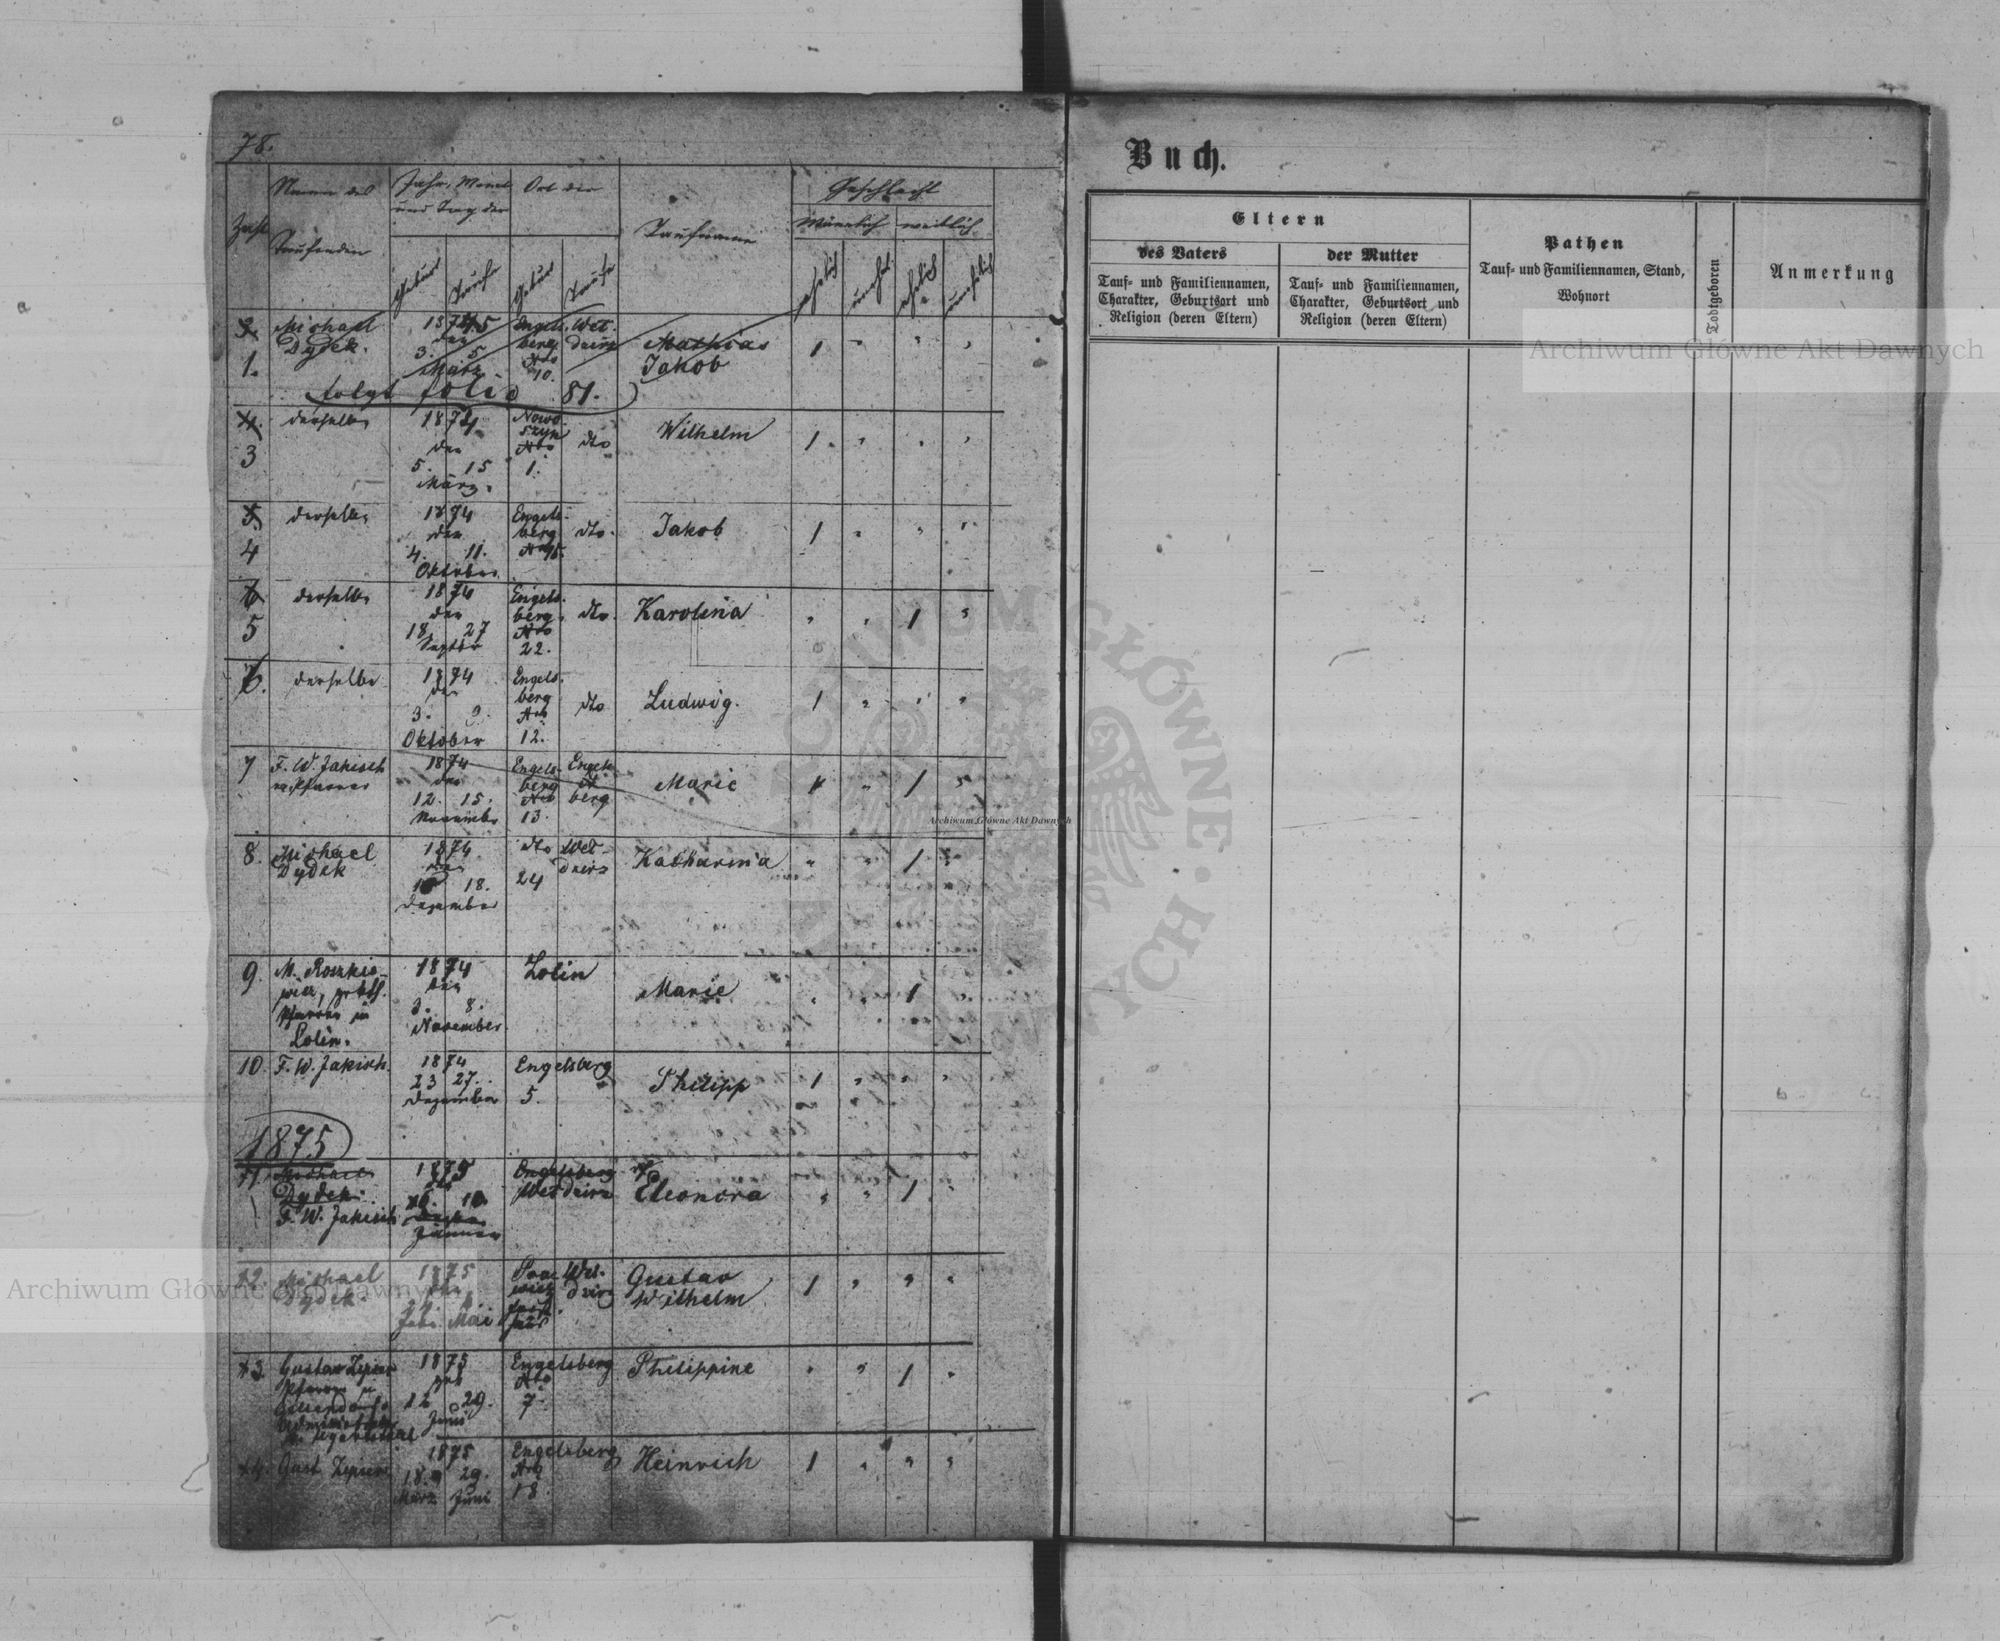 78.
Zahl
Name des
Taufenden
Jahr, Monat
und Tag der
Geburt
Taufe
Ort der
Geburt
Taufe
Taufname
Geschlecht
Männlich
weiblich
ehelich
unehl.
ehelich
unehelich
1.
Michael
Dydek.
1875
den
3. 5
März
Engels-
berg
Nro
10.
Wel-
dzirz
Mathias
Jakob
1 " " "
folgt folio 81.
3
derselbe
1874
den
5. 15
März.
Nowo-
szyn
Nro
1.
dto
Wilhelm
1 " " "
4
derselbe
1874
den
4. 11.
Oktober
Engels-
berg
dto.
Jakob
1 " " "
5
derselbe
1874
den
18. 27
Septbr
Engels-
berg.
Nro
22.
dto.
Karolina
" " 1 "
6.
derselbe
1874
den
3. 9.
Oktober
Engels-
berg
Nro
12.
dto
Ludwig.
1 " " "
7
F. W. Jakisch
Pfarrer
1874
den
12. 15.
November
Engels-
berg
Nro
13.
Engels-
berg
Marie
" 1 "
8.
Michael
Dydek
1874
den
18.
Dezember
dto
24
Wel-
dzirz
Katharina
" " 1 "
9.
M. Roszkie-
wicz, grkth.
Pfarrer in
Lolin.
1874
den
3. 8.
November
Lolin
Marie
" " 1 "
10.
F. W. Jakisch
1874
23 27.
Dezember
Engelsberg
5.
Philipp
1 " " "
1875
11.
Michael
Dydek.
F. W. Jakisch
1875
Jänner
Engelsberg
Weldzirz
Eleonora
" " 1 "
12.
Michael
Dydek.
1875
den
Febr. Mai
Wel-
dzirz
Gustav
Wilhelm
1 " " "
13.
Gustav Zipser
Pfarrer in
Gelsendorf
Administrator
1875
den
12 29.
Juni
Engelsberg
Nro
7.
Philippine
" " 1 "
14.
Gust. Zipser
1875
18. 29.
März Juni
Engelsberg
Nro
18.
Heinrich
1 " " "
Buch.
Eltern
des Vaters
der Mutter
Tauf= und Familiennamen,
Charakter, Geburtsort und
Religion (deren Eltern)
Tauf= und Familiennamen,
Charakter, Geburtsort und
Religion (deren Eltern)
Pathen
Tauf= und Familiennamen, Stand,
Wohnort
Todtgeboren
Anmerkung
Archiwum Główne Akt Dawnych
ARCHIWUM GŁÓWNE AKT DAWNYCH
Archiwum Główne Akt Dawnych
Archiwum Główne Akt Dawnych